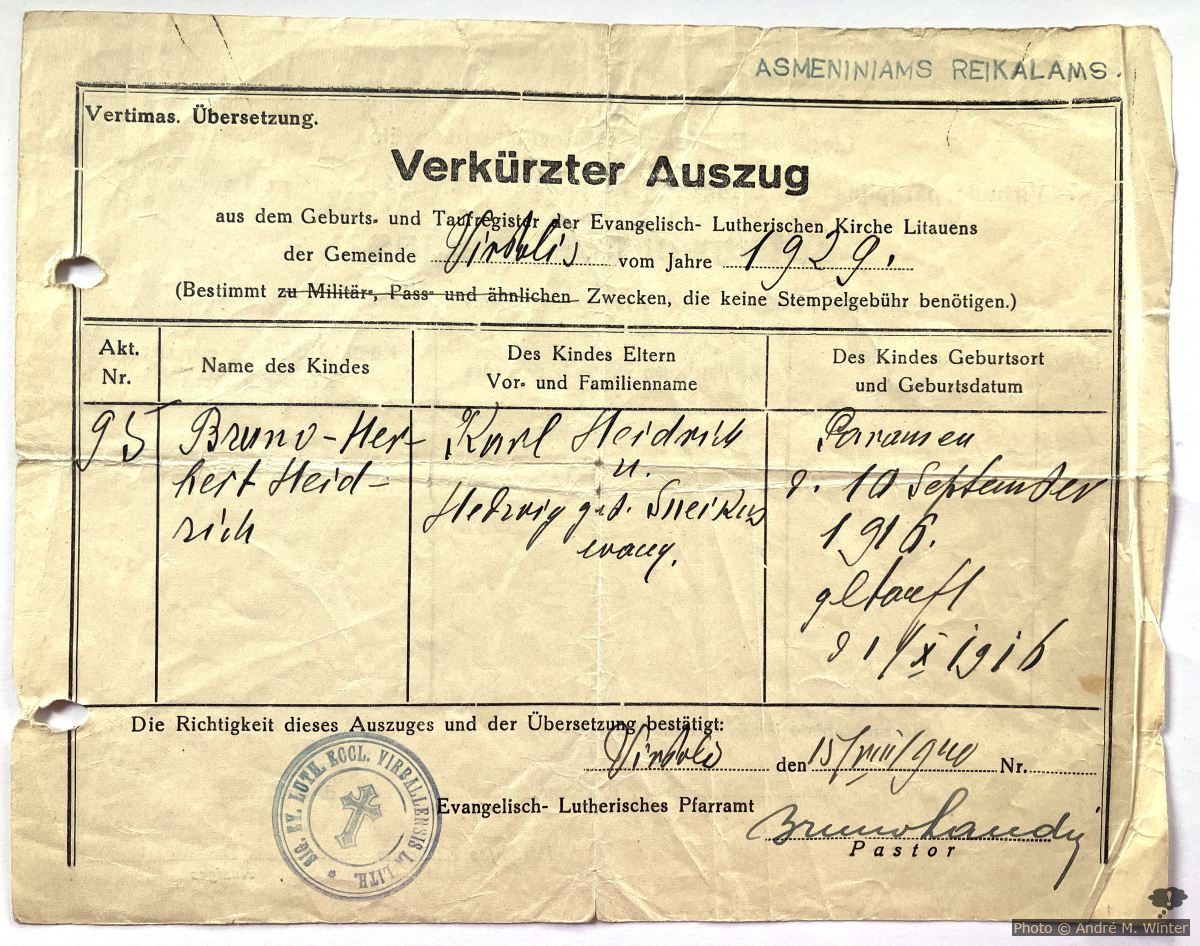 ASMENINIAMS REIKALAMS.
Vertimas. Übersetzung.
Verkürzter Auszug
aus dem Geburts- und Taufregister der Evangelisch- Lutherischen Kirche Litauens
der Gemeinde Virbalis vom Jahre 1929.
(Bestimmt zu Militär-, Pass- und ähnlichen Zwecken, die keine Stempelgebühr benötigen.)
Akt. Nr.
Name des Kindes
Des Kindes Eltern
Vor- und Familienname
Des Kindes Geburtsort
und Geburtsdatum
95
Bruno-Her-
bert Heid-
rich
Karl Heidrich
u.
Hedwig geb.
evang.
d. 10 September
1916.
getauft
d 1/X 1916
Die Richtigkeit dieses Auszuges und der Übersetzung bestätigt:
Virbalis den 15/VIII/940 Nr.
Evangelisch- Lutherisches Pfarramt
Pastor
SIG. EV. LUTH. ECCL. VIRBALLENSIS I. LITH. *
Photo © André M. Winter